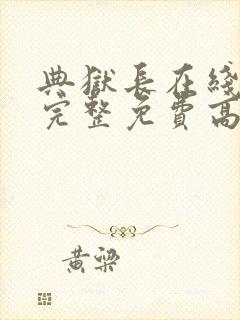 典獄長在綫
完整免費高
黃梁